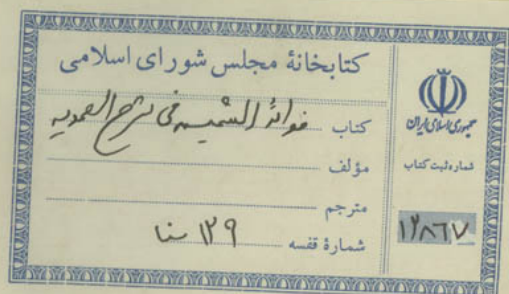 کتابخانهٔ مجلس شورای اسلامی
کتاب فوائد الشمیسه فی شرح الصمدیه
مؤلف
مترجم
شمارهٔ قفسه ۱۳۹
جمهوری اسلامی ایران
شماره ثبت کتاب
۱۲۸۶۷